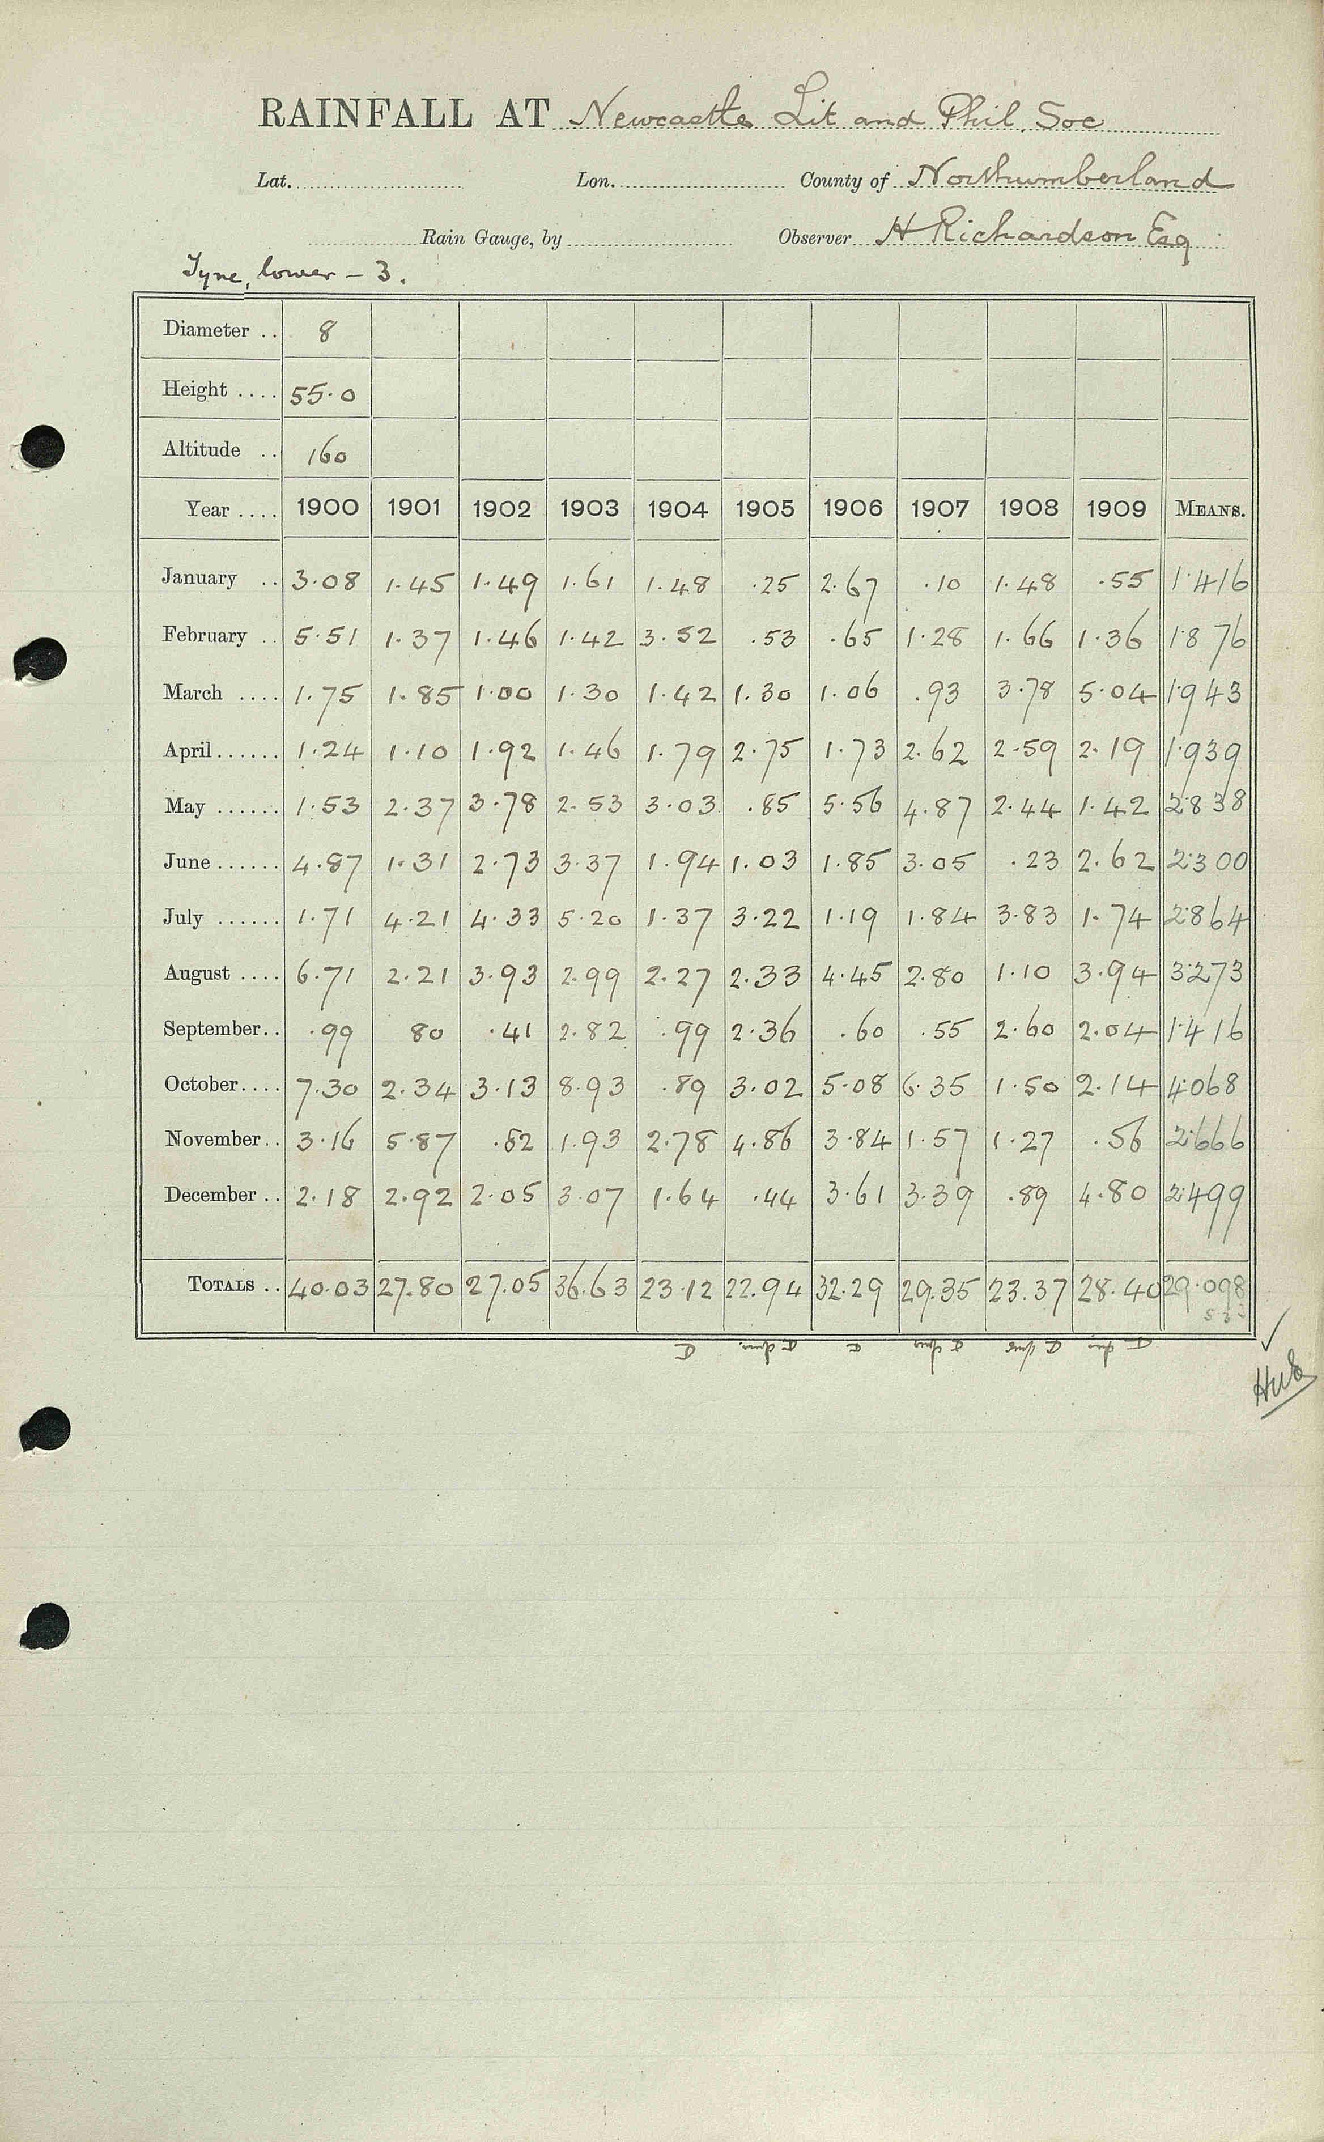 RAINFALL AT Newcastle Lit and Phil. Soc
Lat. Lon. County of Northumberland
Rain Gauge, by Observer H Richardson Esq
Tyne, lower - 3.
Diameter .. 8
Height .... 55.0
Altitude .. 160
Year .... 1900 1901 1902 1903 1904 1905 1906 1907 1908 1909 MEANS.
January .. 3.08 1.45 1.49 1.61 1.48 .25 2.67 .10 1.48 .55 1.416
February .. 5.51 1.37 1.46 1.42 3.52 .53 .65 1.28 1.66 1.36 1.876
March .... 1.75 1.85 1.00 1.30 1.42 1.30 1.06 .93 3.78 5.04 1.943
April...... 1.24 1.10 1.92 1.46 1.79 2.75 1.73 2.62 2.59 2.19 1.939
May ...... 1.53 2.37 3.78 2.53 3.03 .85 5.56 4.87 2.44 1.42 2.838
June...... 4.87 1.31 2.73 3.37 1.94 1.03 1.85 3.05 .23 2.62 2.300
July ...... 1.71 4.21 4.33 5.20 1.37 3.22 1.19 1.84 3.83 1.74 2.864
August .... 6.71 2.21 3.93 2.99 2.27 2.33 4.45 2.80 1.10 3.94 3.273
September.. .99 80 .41 2.82 .99 2.36 .60 .55 2.60 2.04 1.416
October.... 7.30 2.34 3.13 8.93 .89 3.02 5.08 6.35 1.50 2.14 4.068
November.. 3.16 5.87 .82 1.93 2.78 4.86 3.84 1.57 1.27 .56 2.666
December .. 2.18 2.92 2.05 3.07 1.64 .44 3.61 3.39 .89 4.80 2.499
TOTALS .. 40.03 27.80 27.05 36.63 23.12 22.94 32.29 29.35 23.37 28.40 29.098